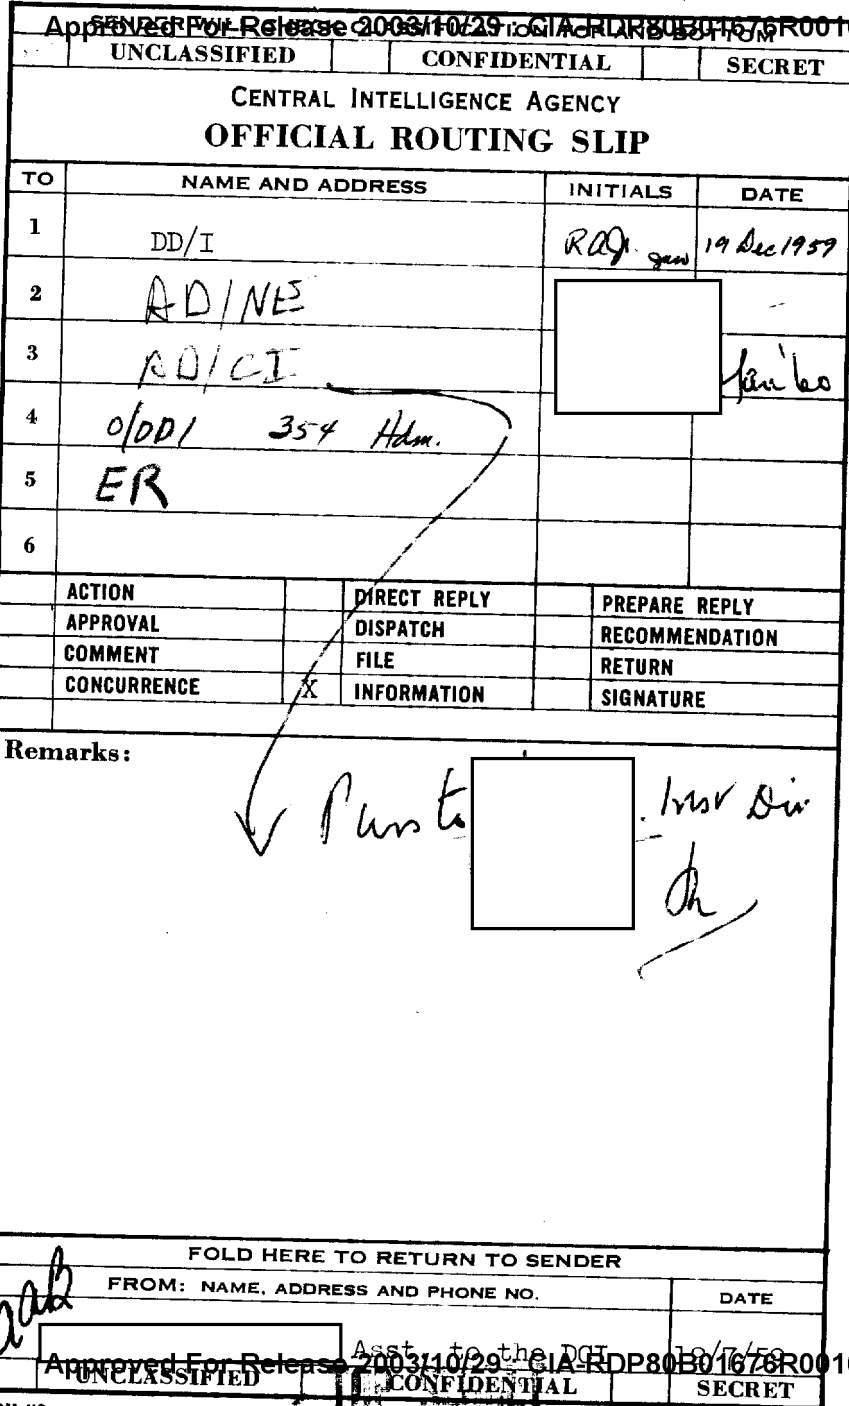 Approved For Release 2003/10/29 : CIA-RDP80B01676R001
UNCLASSIFIED CONFIDENTIAL SECRET
CENTRAL INTELLIGENCE AGENCY
OFFICIAL ROUTING SLIP
TO NAME AND ADDRESS INITIALS DATE
1 DD/I 19 Dec 1959
2 AD/NE
3 AD/CI
4 O/DDI 354 Adm.
5 ER
6
ACTION DIRECT REPLY PREPARE REPLY
APPROVAL DISPATCH RECOMMENDATION
COMMENT FILE RETURN
CONCURRENCE X INFORMATION SIGNATURE
Remarks:
FOLD HERE TO RETURN TO SENDER
FROM: NAME, ADDRESS AND PHONE NO. DATE
Asst. to the DCI
Approved For Release 2003/10/29 : CIA-RDP80B01676R001
UNCLASSIFIED CONFIDENTIAL SECRET